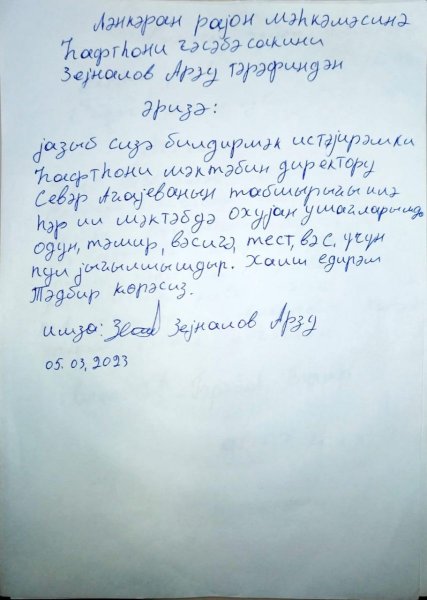 Ләнкәран рајон мәһкәмәсинә
Һафтһони гәсәбә сакини
Зејналов Арзу тәрәфиндән
әризә:
јазыб сизә билдирмәк истәјирәмки
Һафтһони мәктәбин директору
Севәр Агајеванын табшырыгы илә
һәр ил мәктәбдә охујан ушагларындан
одун, тәмир, вәсигә, тест, вә с, учун
пул јығылмышдыр. Хаиш едирәм
Тәдбир көрәсиз.
имза: Зејналов Арзу
05.03.2023